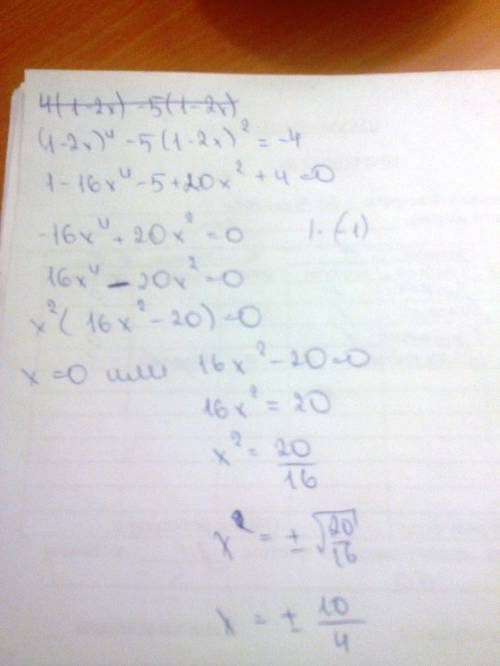 4(1-2x) - 5(1-2x)
(1-2x)⁴ - 5(1-2x)² = -4
1 - 16x⁴ - 5 + 20x² + 4 = 0
-16x⁴ + 20x² = 0 |·(-1)
16x⁴ - 20x² = 0
x²(16x² - 20) = 0
x = 0 или 16x² - 20 = 0
16x² = 20
x² = 20/16
x² = ± √20/16
x = ± 10/4